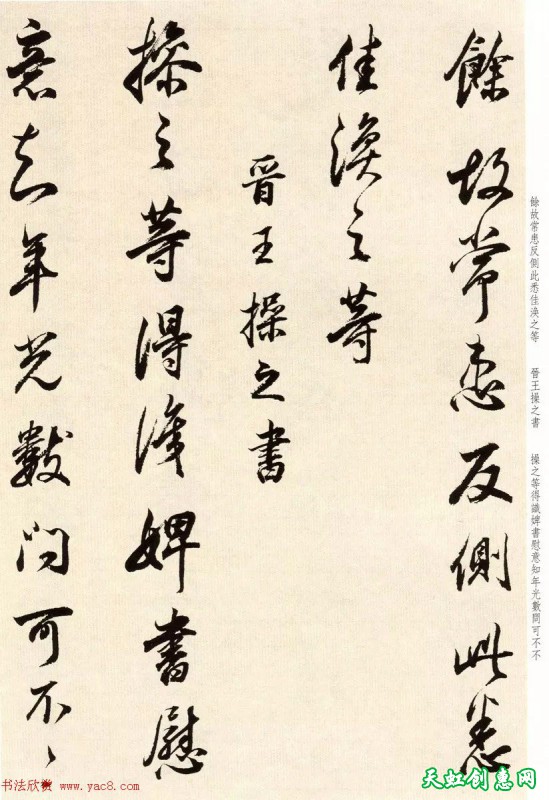 餘故常患反側此悉
佳渙之等
晉王操之書
操之等得識婢書慰
意知年光數問可不〻
餘故常患反側此悉佳渙之等　晉王操之書　操之等得識婢書慰意知年光數問可不不
书法欣赏 www.yac8.com
天虹创惠网